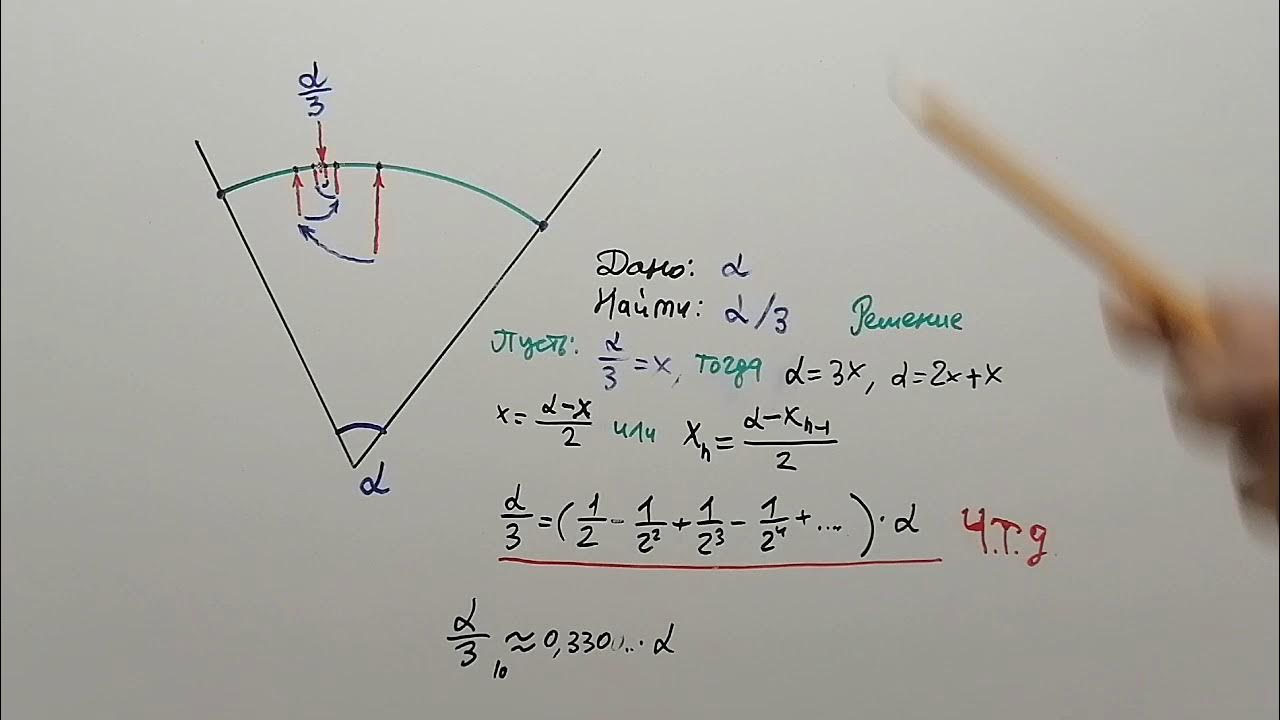 α/3
α
Дано: α
Найти: α/3 Решение
Пусть: α/3 = x, тогда α=3x, α=2x+x
x = (α-x)/2 или xₙ = (α-xₙ₋₁)/2
α/3 = (1/2 - 1/2² + 1/2³ - 1/2⁴ + ....) · α Ч.т.д
α/3 ₁₀ ≈ 0,330... · α